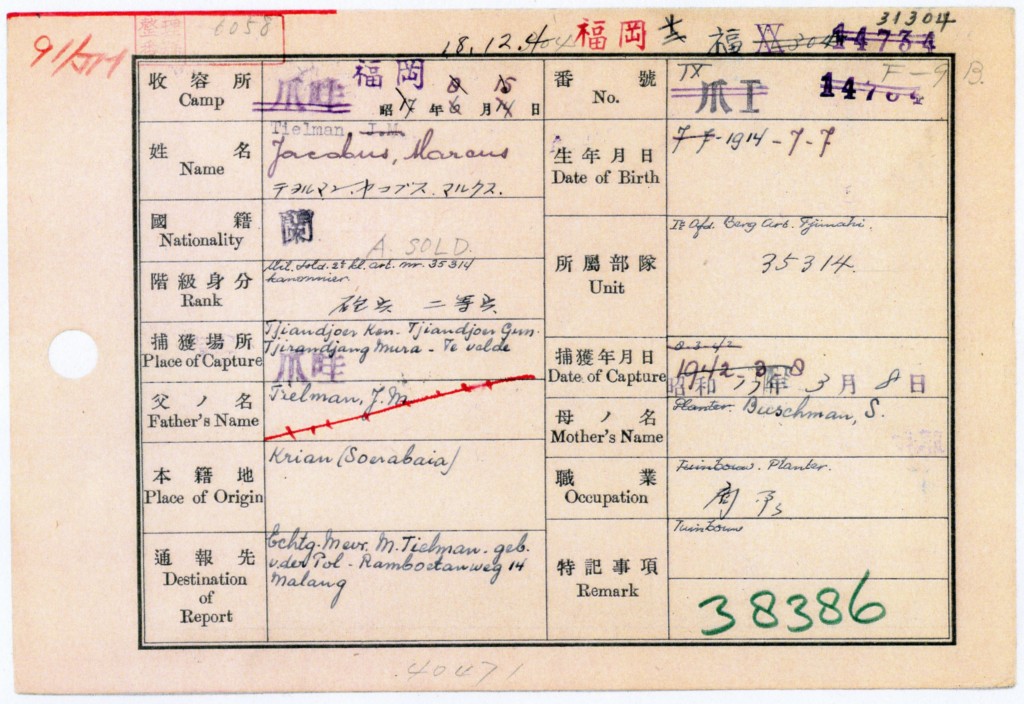 6058
18.12.
福岡
福
31304
14734
收容所
Camp
福岡
爪哇
昭 17 年 8 月 15 日
番號
No.
IX
爪 王
14734
F-9 B.
姓名
Name
Tielman J.M.
Jacobus, Marcus
チヲルマン.ヤコブス.マルクス.
生年月日
Date of Birth
7-7-1914-7-7
國籍
Nationality
蘭
A. SOLD.
階級身分
Rank
Mil. sold. 2e kl. art. nr. 35314
kanonnier.
砲兵 二等兵
所屬部隊
Unit
Ie Afd. Berg Art. Tjimahi.
35314.
捕獲場所
Place of Capture
Tjiandjoer Ken. Tjiandjoer Gun.
Tjirandjang Mura - Te velde
爪哇
捕獲年月日
Date of Capture
8-3-42
1942-3-8
昭和 17 年 3 月 8 日
父ノ名
Father's Name
Tielman, J.M.
母ノ名
Mother's Name
Planter. Buschman, S.
本籍地
Place of Origin
Krian (Soerabaia)
職業
Occupation
Tuinbouw. Planter.
通報先
Destination
of
Report
Echtg. Mevr. M. Tielman. geb.
v.der Pol - Ramboetanweg 14
Malang
特記事項
Remark
Tuinbouw
38386
40471